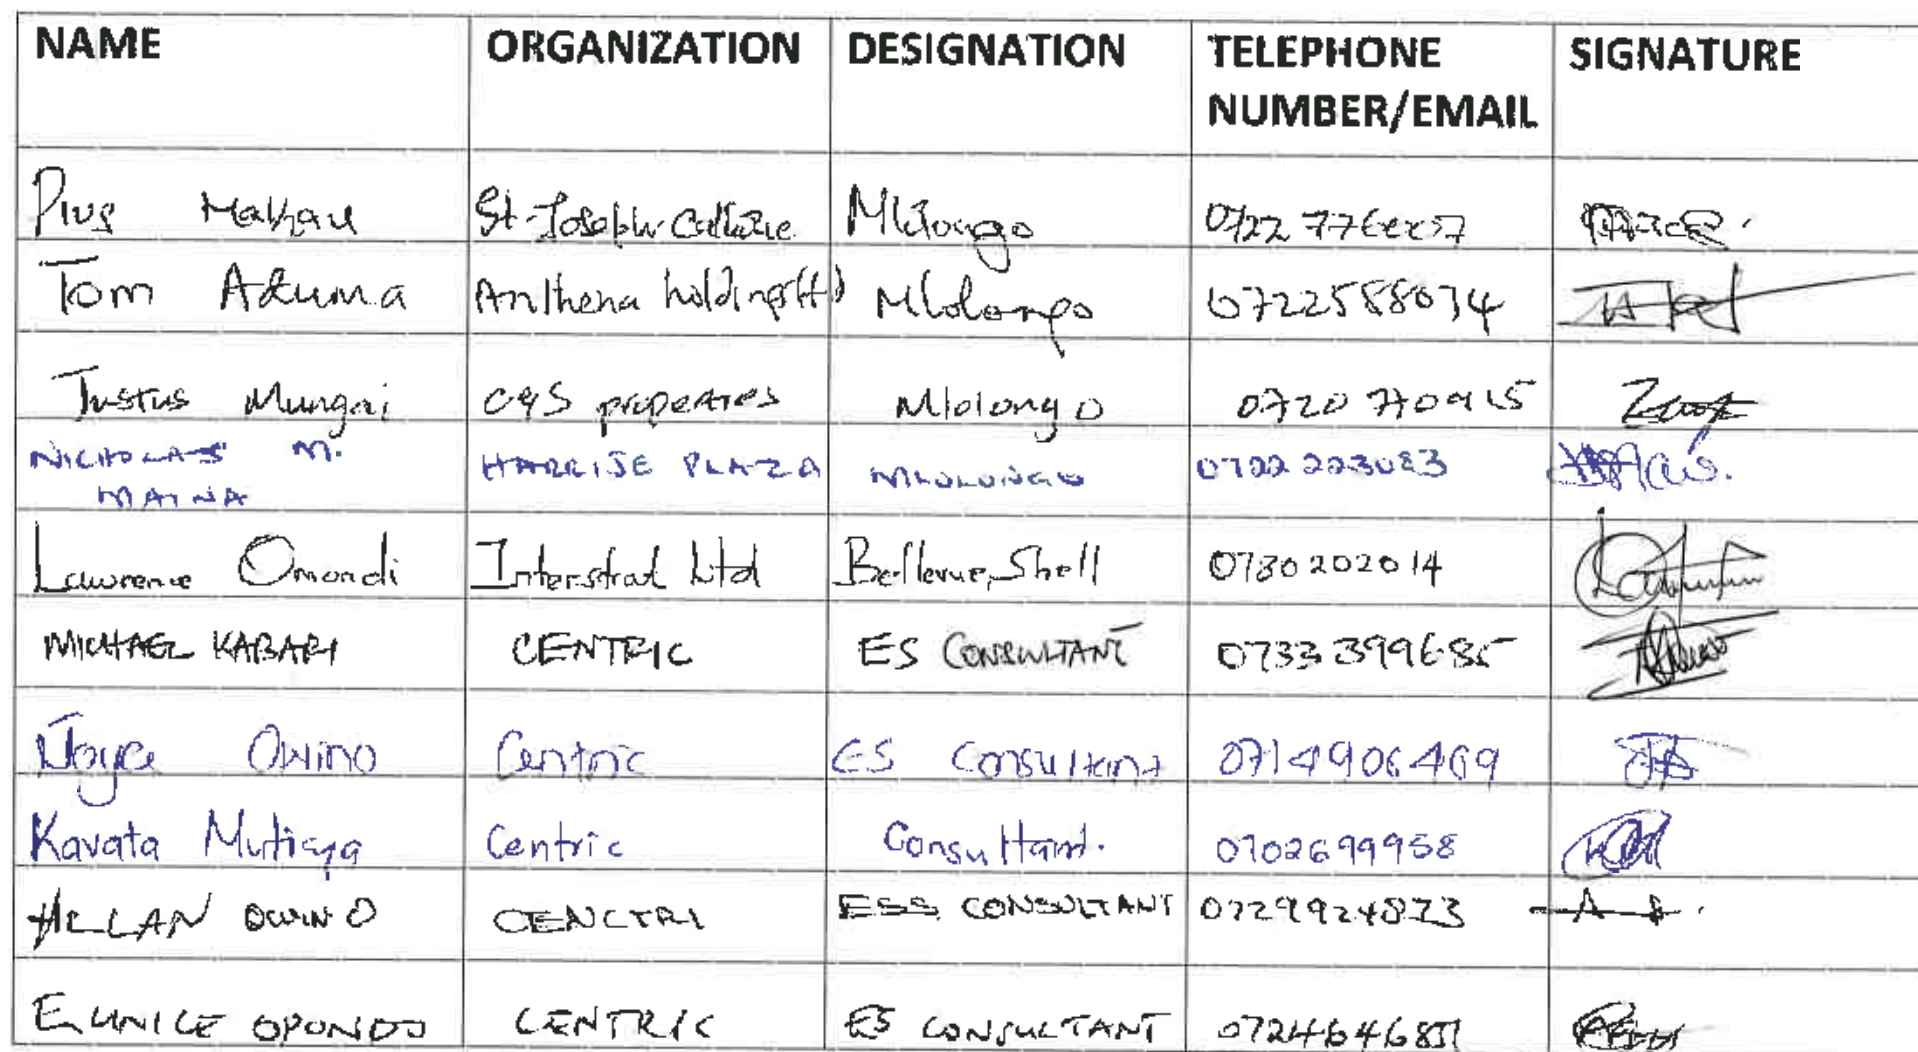 NAME ORGANIZATION DESIGNATION TELEPHONE NUMBER/EMAIL SIGNATURE
Pius Makau St. Joseph Mlolongo
Tom Aduma Anthena holdings Mlolongo 0722588074
Justus Mungai C&S properties Mlolongo 0720770915
NICHOLAS M. MAINA HARRISE PLAZA MLOLONGO 0722223083
Lawrence Omondi Interstrat Ltd Bellevue, Shell 0730202014
MICHAEL KABARI CENTRIC ES CONSULTANT 0733399685
Joyce Owino Centric ES Consultant 0714906469
Kavata Mutiaya Centric Consultant. 0702699958
ALLAN OWINO CENCTRI ESS CONSULTANT 0729924873
EUNICE OPONDO CENTRIC ES CONSULTANT